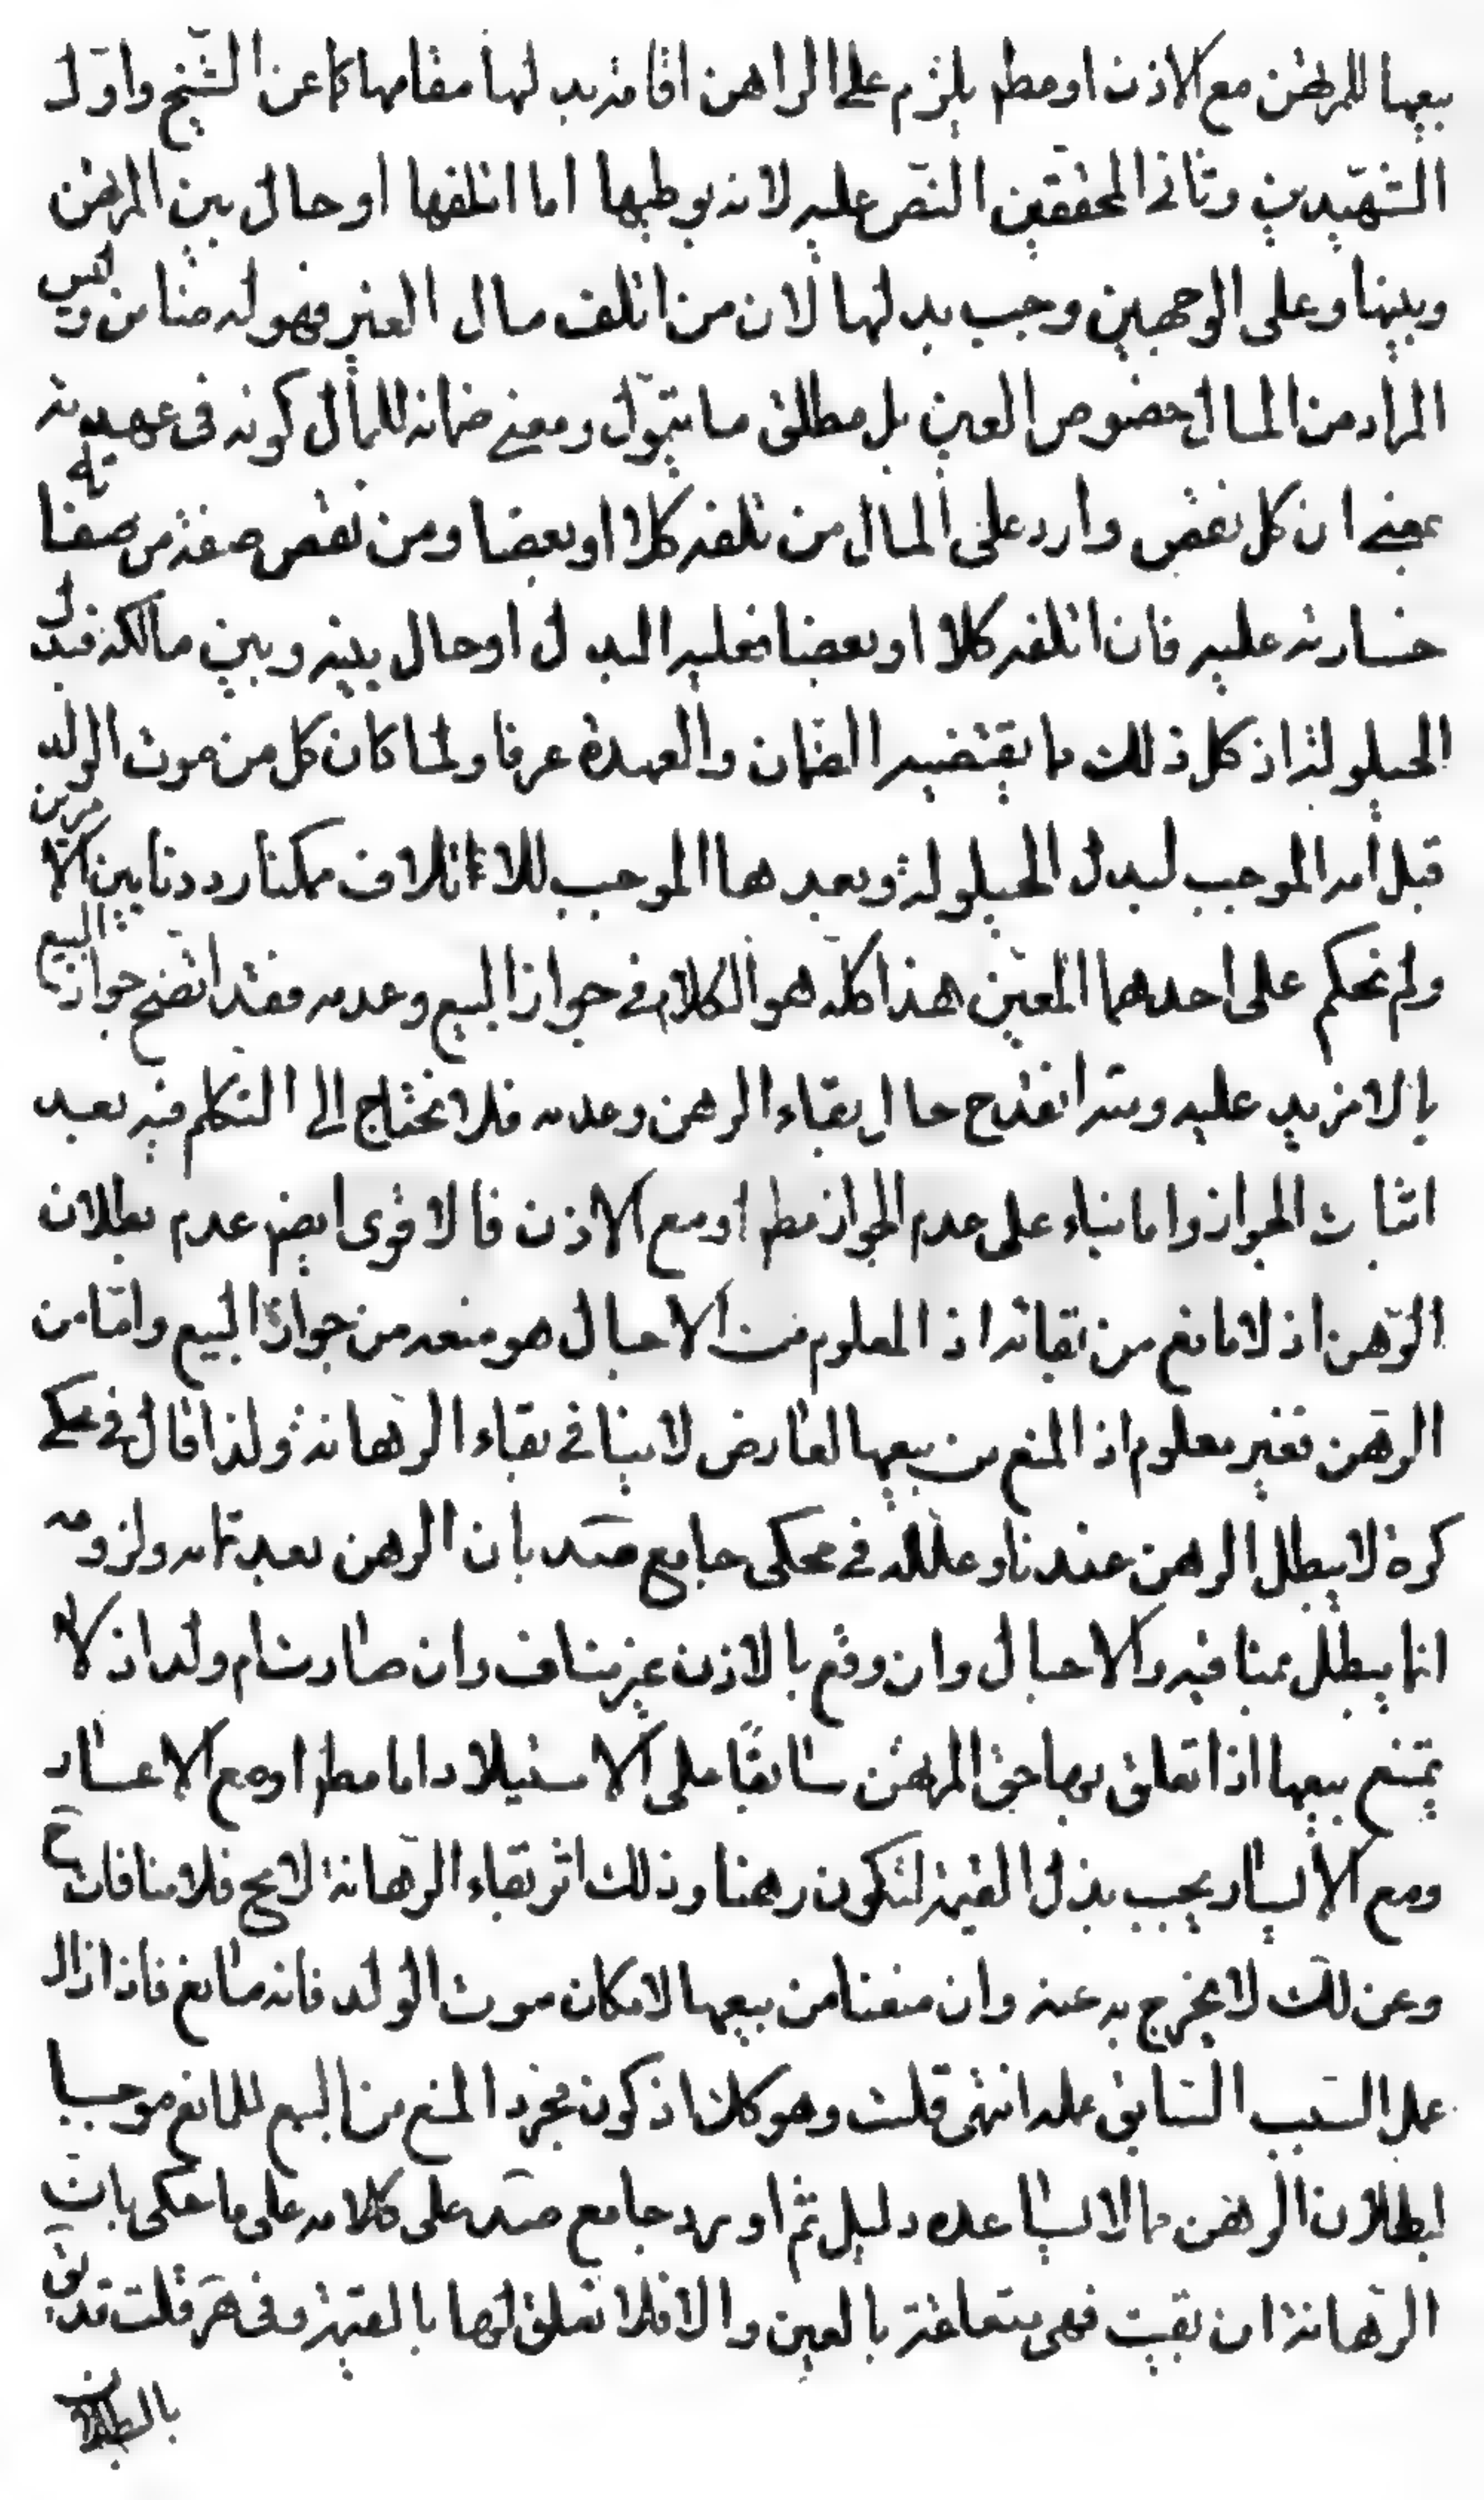 بيعها للمرتهن مع الاذن او مطم يلزم على الراهن اقامة بدلها مقامها كما عن الشيخ واول
الشهيدين وثانى المحققين النص عليه لانه بوطيها اما اتلفها او حال بين المرتهن
وبينها وعلى الوجهين وجب بدلها لان من اتلف مال الغير فهو له ضامن وليس
المراد من المال خصوص العين بل مطلق ما يتمول ومعنى ضمانه للمال كونه فى عهدته
بمعنى ان كل نقص وارد على المال من تلفه كلا او بعضا ومن نقص صفة من صفاته
خسارته عليه فان اتلفه كلا او بعضا فعليه البدل او حال بينه وبين مالكه فبدل
الحيلولة اذ كل ذلك ما يقتضيه الضمان والعهدة عرفا ولما كان كل من موت الولد
قبل امه الموجب لبدل الحيلولة وبعدها الموجب للاتلاف ممكنا رددنا بين الامرين
ولم نحكم على احدهما المعين هذا كله هو الكلام فى جواز البيع وعدمه فقد اتضح جواز البيع
بما لا مزيد عليه ومنه انقدح حال بقاء الرهن وعدمه فلا نحتاج الى التكلم فيه بعد
اثبات الجواز واما بناء على عدم الجواز مطم او مع الاذن فالاقوى ايضم عدم بطلان
الرهن اذ لا مانع من بقائه اذ المعلوم من الاحبال هو منعه من جواز البيع واما من
الرهن فغير معلوم اذ المنع من بيعها لعارض لا ينافى بقاء الرهانة ولذا قال فى محكى
كرة لا يبطل الرهن عندنا وعلله فى محكى جامع صد بان الرهن بعد تمامه ولزومه
انما يبطل بمنافيه والاحبال وان وقع بالاذن غير مناف وان صارت ام ولد اذ لا
يمتنع بيعها اذا تعلق بها حق المرتهن سابقا على الاستيلاد اما مطم او مع الاعسار
ومع الايسار يجب بذل القيمة لتكون رهنا وذلك اثر بقاء الرهانة لا مح فلا منافات ح
وعن لك لا يخرج به عنه وان منعنا من بيعها لامكان موت الولد فانه مانع فاذا زال
عمل السبب السابق عمله انتهى قلت وهو كلنا اذ كون مجرد المنع من البيع للمانع موجبا
لبطلان الرهن مما لا يساعده دليل ثم اورد جامع صد على كلامه على ما حكى بان
الرهانة ان بقيت فهى متعلقة بالعين والا فلا تعلق لها بالقيمة وفى هر قلت قد يق
بالبطلان